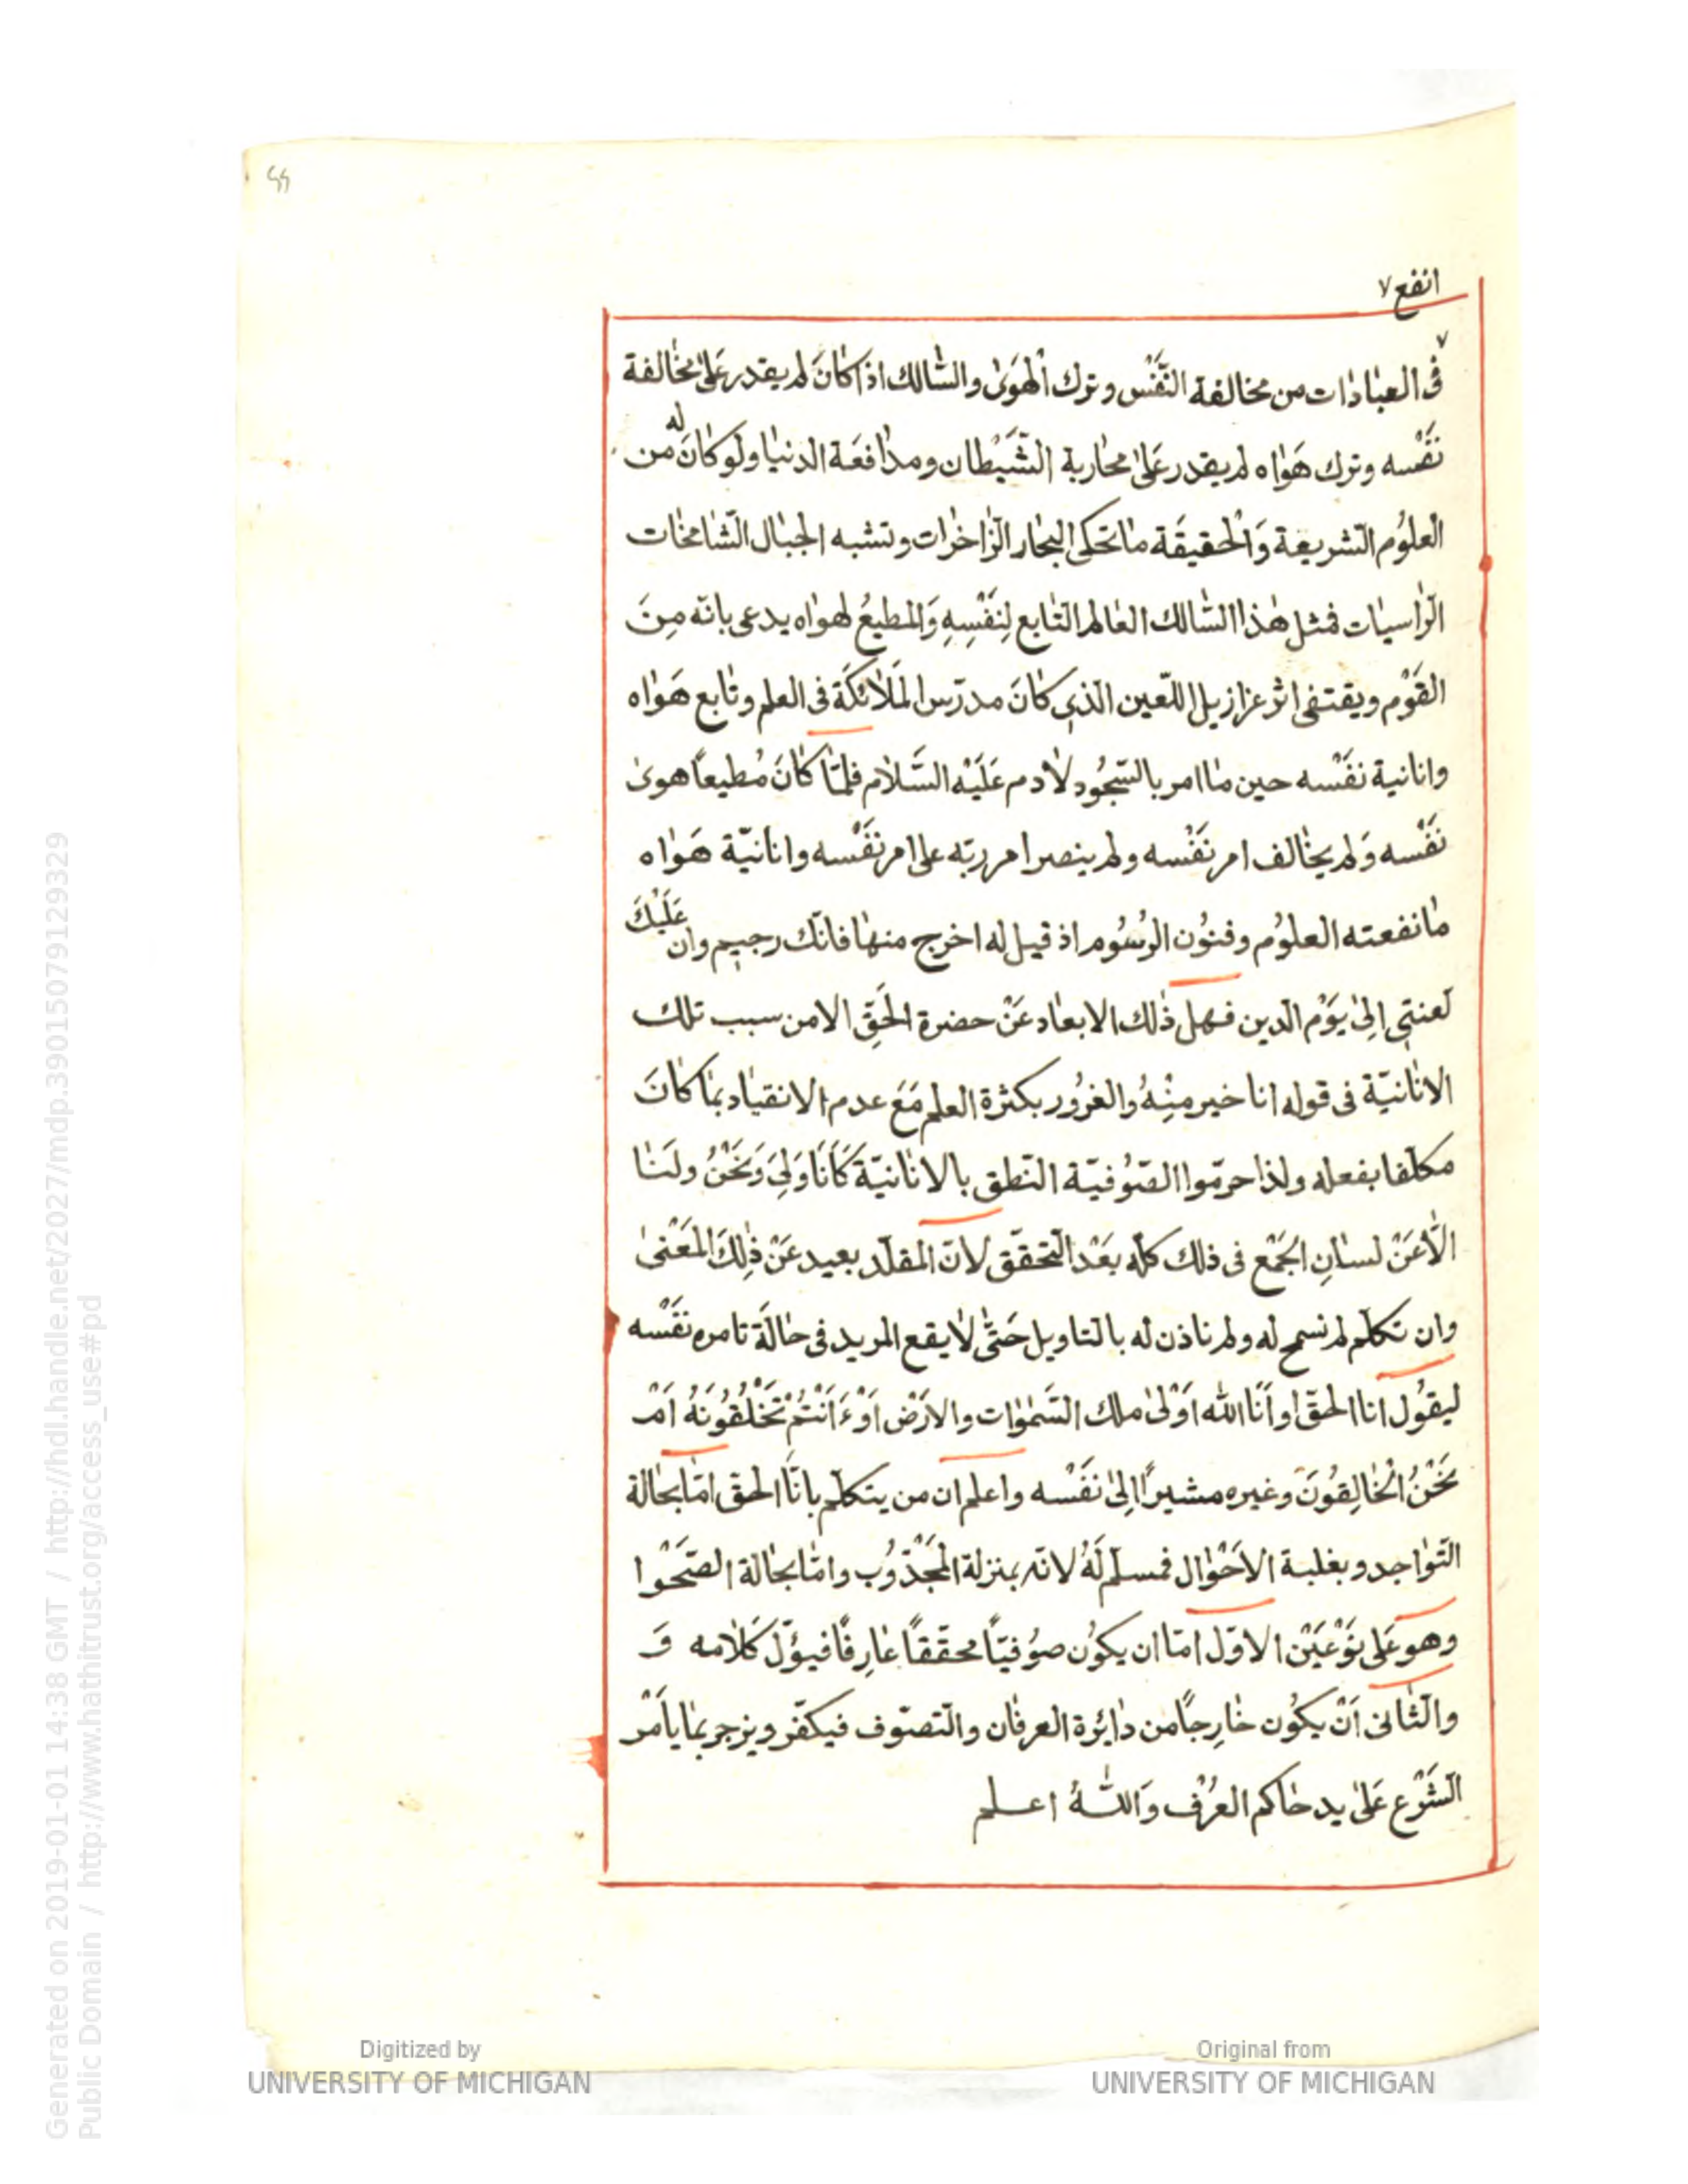 ٤٤
انفع ٧
٧
فى العبٰادٰات من مخالفة النَّفْس وترك الْهَوٰى والسّٰالك اذا كٰانَ لم يقدر عَلٰى مخٰالفة
نَفْسه وترك هَوٰاه لم يقدر عَلٰى محٰاربة الشَّيْطان ومدٰافعَة الدنيٰا ولَو كٰانَ له من
العلوُم الشريعة وَالْحقيقَة مٰا تحكى البحٰار الزّٰاخرٰات وتشبه الجبٰال الشّٰامخٰات
الرّٰاسيٰات فمثل هٰذا السّٰالك العٰالم التّٰابع لِنَفْسِهِ وَالمطيعُ لهوٰاه يدعى بانّه مِنَ
القَوْم ويقتفى اثر عزازيل اللّعين الّذي كٰانَ مدرّس المَلٰائكَة فى العلم وتٰابع هَوٰاه
وانانية نفَسْه حين مٰا امر بالسّجُود لاٰدم عَلَيْه السَّلاٰم فلمّٰا كٰانَ مُطيعاً هوىٰ
نَفْسه وَلم يخٰالف امر نَفْسه ولم ينصر امر ربّه على امر نَفْسه وانانيّة هَوٰاه
مٰا نفعته العلوُم وفنوُن الرسُوُم اذ قيل له اخرج منهٰا فانّك رجيم وان عَلَيْكَ
لَعنتي اِلىٰ يَوْم الدّين فهل ذٰلك الابعٰاد عَنْ حضرة الحَقِّ الا من سبب تلك
الانٰانيّة فى قوله انا خير مِنْهُ والغرُور بكثرة العلم مَعَ عدم الانقيٰاد بمٰا كٰانَ
مكلّفا بفعله ولذا حرّموا الصّوُفيّة النّطق بالانٰانيّة كَأَنَا وَلِيَ وَنَحْنُ ولَنٰا
الّاٰ عَنْ لسٰانِ الجَمْع فى ذلك كلّه بَعْد التّحقّق لانّ المقلّد بعيد عَنْ ذٰلِكَ المَعْنىٰ
وان تكلّم لم نسمح له ولم ناذن له بالتاويل حَتّٰى لاٰ يقع المريد فى حٰالَة تامره نفَسْه
ليقوُل انا الحقّ او أنَا الله اَوْ لىٰ ملك السَّمٰوٰات والارَْض اَوْ ءَاَنْتُمْ تَخْلُقُونَهُ اَمْ
نَحْنُ الْخٰالِقوُنَ وغيره مشيراً اِلىٰ نَفْسه واعلم ان من يتكلّم بانّا الحقّ امّٰا بحٰالة
التّوٰاجد وبغلبة الاَحْوٰال فمسلّم لَهُ لانّه بمنزلة المجَْذوُب وامّٰا بحٰالة الصّحْوا
وهو عَلى نَوْعَيْن الاوّل امّا ان يكوُن صوُفيّاً محقّقاً عٰارِفاً فيؤّل كَلاٰمه وَ
والثّانى اَنْ يكوُن خٰارِجاً من دٰايُرة العرفٰان والتّصوّف فيكفّر ويزجر بمٰا يأَمْر
الشَّرْع عَلىٰ يد حٰاكم العُرْف وَاللّٰهُ اعـلم
Digitized by
UNIVERSITY OF MICHIGAN
Original from
UNIVERSITY OF MICHIGAN
Generated on 2019-01-01 14:38 GMT / http://hdl.handle.net/2027/mdp.39015079129329
Public Domain / http://www.hathitrust.org/access_use#pd